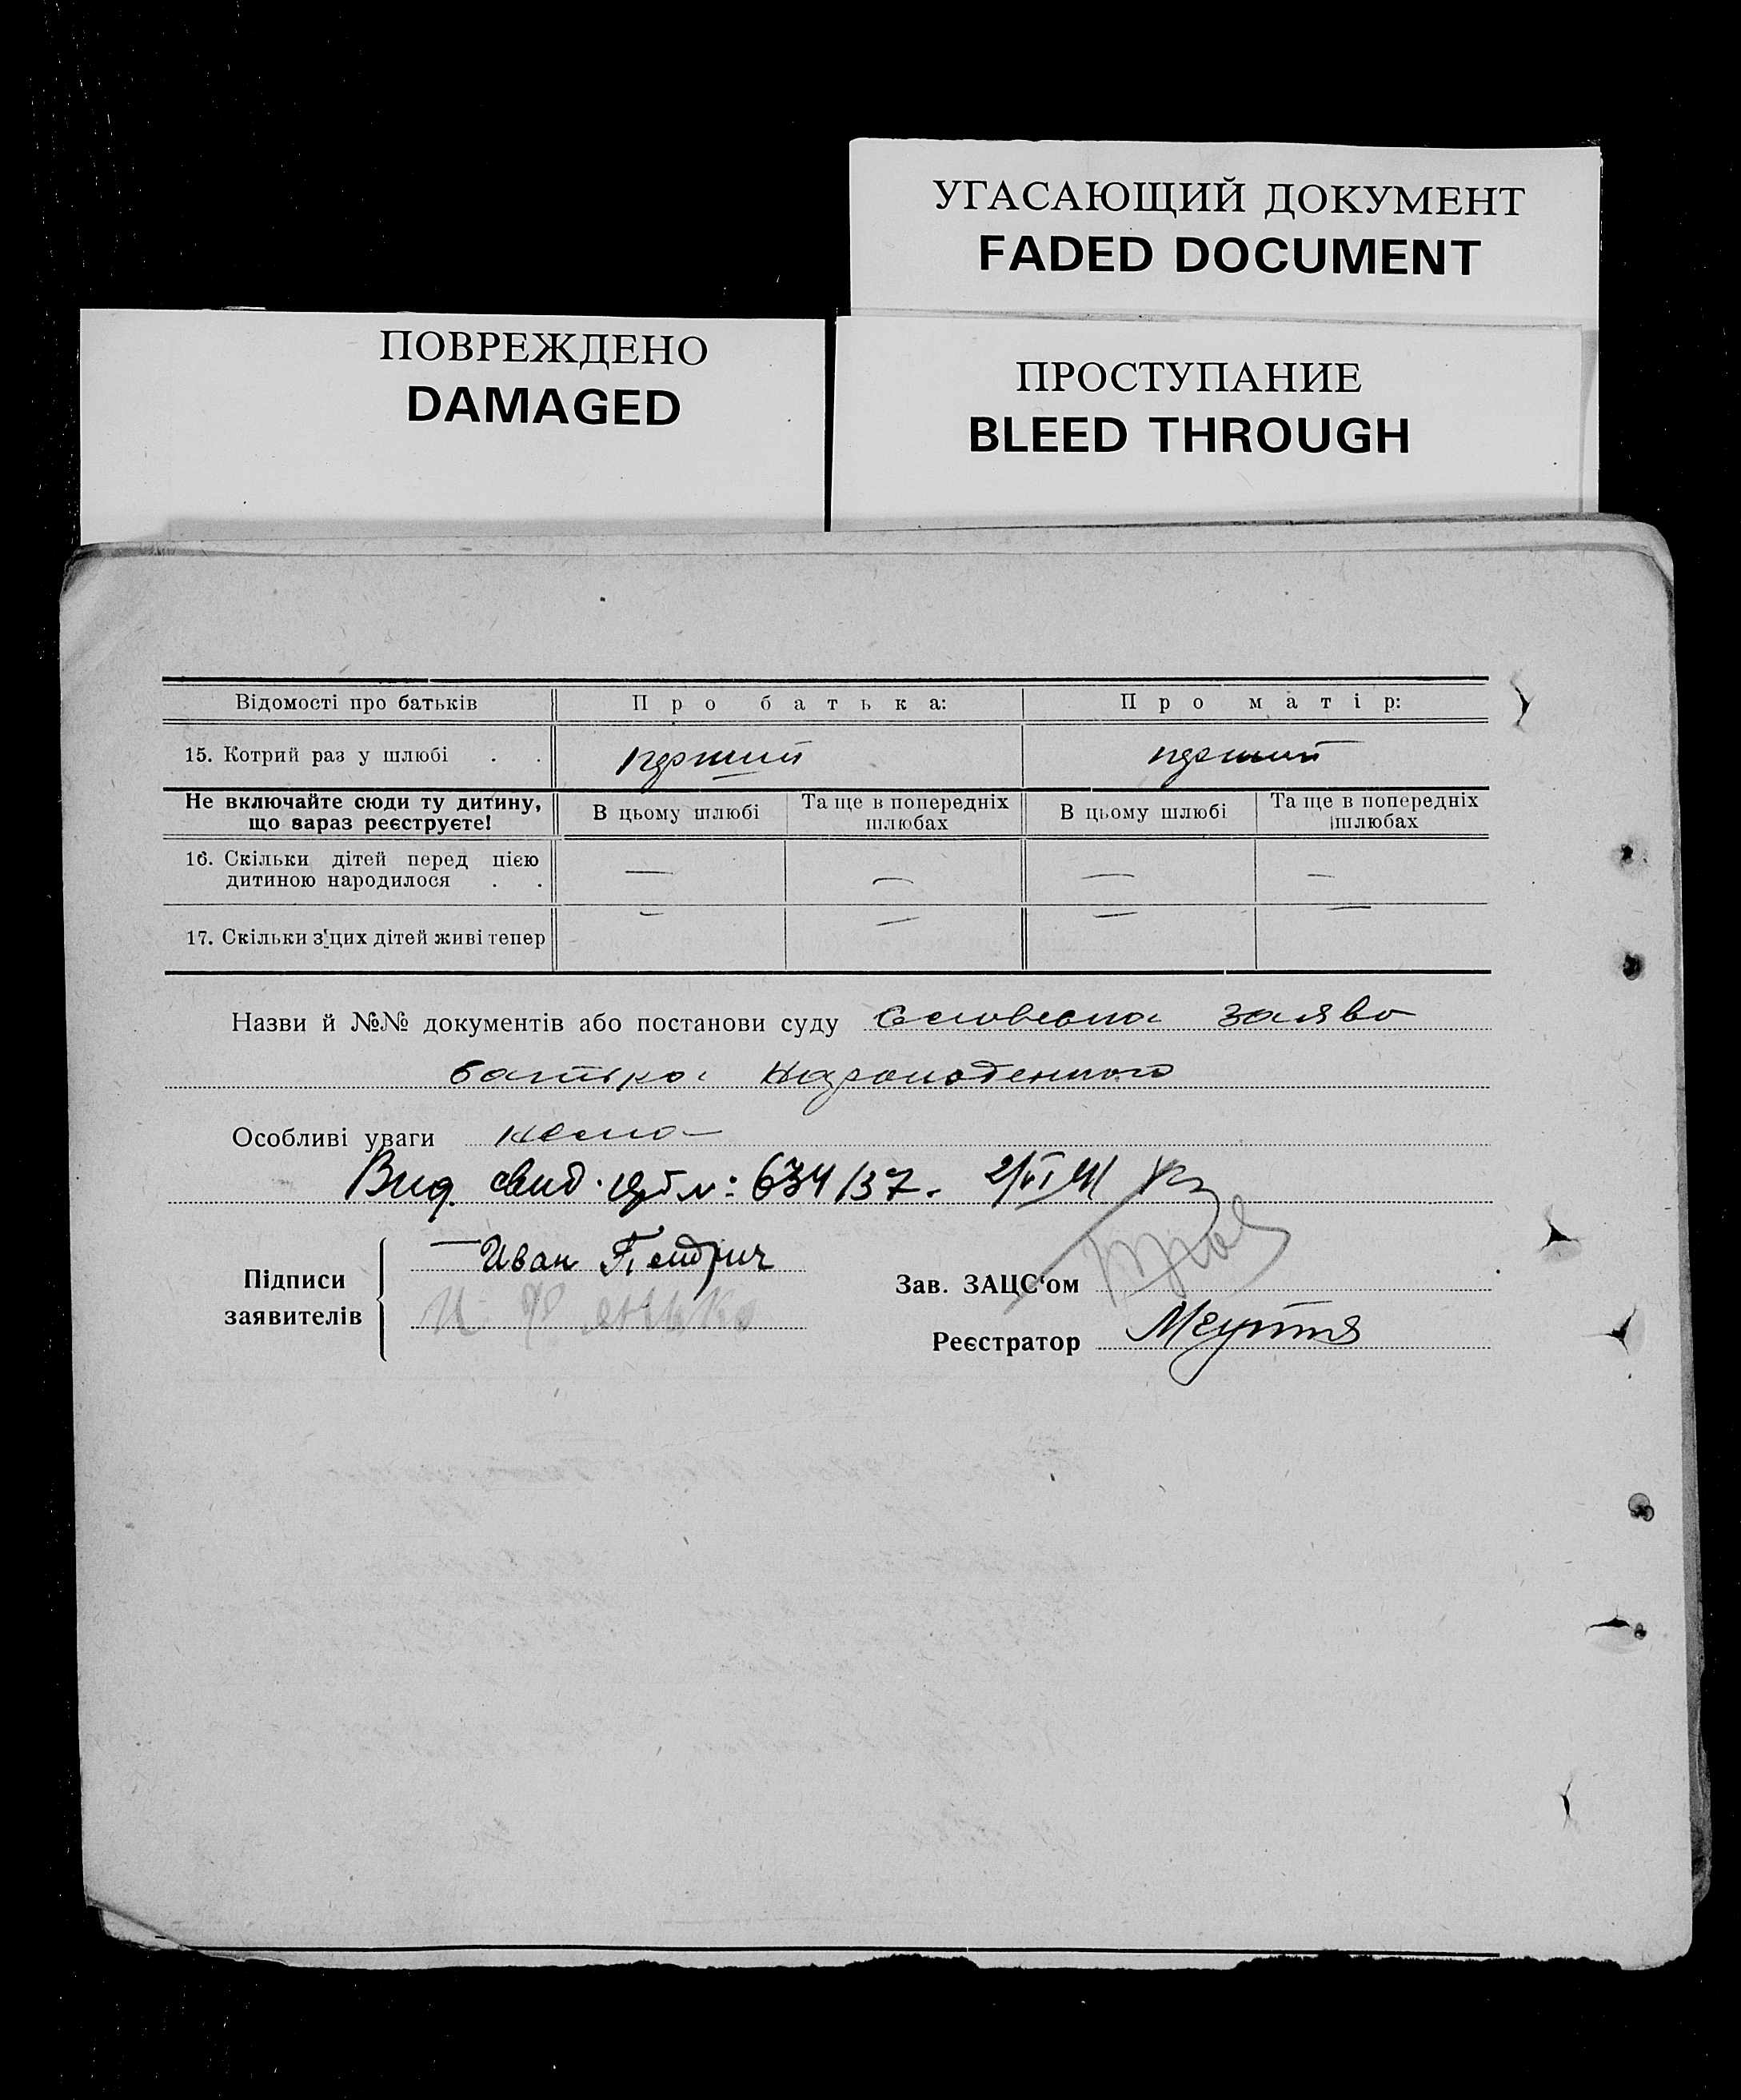 УГАСАЮЩИЙ ДОКУМЕНТ
FADED DOCUMENT
ПОВРЕЖДЕНО
DAMAGED
ПРОСТУПАНИЕ
BLEED THROUGH
Відомості про батьків Про батька: Про матір:
15. Котрий раз у шлюбі . . перший перший
Не включайте сюди ту дитину, що зараз реєструєте! В цьому шлюбі Та ще в попередніх шлюбах В цьому шлюбі Та ще в попередніх шлюбах
16. Скільки дітей перед цією
дитиною народилося . . — — — —
17. Скільки з цих дітей живі тепер — — — —
Назви й №№ документів або постанови суду Словесна заява
батька народженного
Особливі уваги нема
Вид. свид. 634/37. 2/VI 41
Підписи
заявителів
Иван
Зав. ЗАЦС'ом
Реєстратор